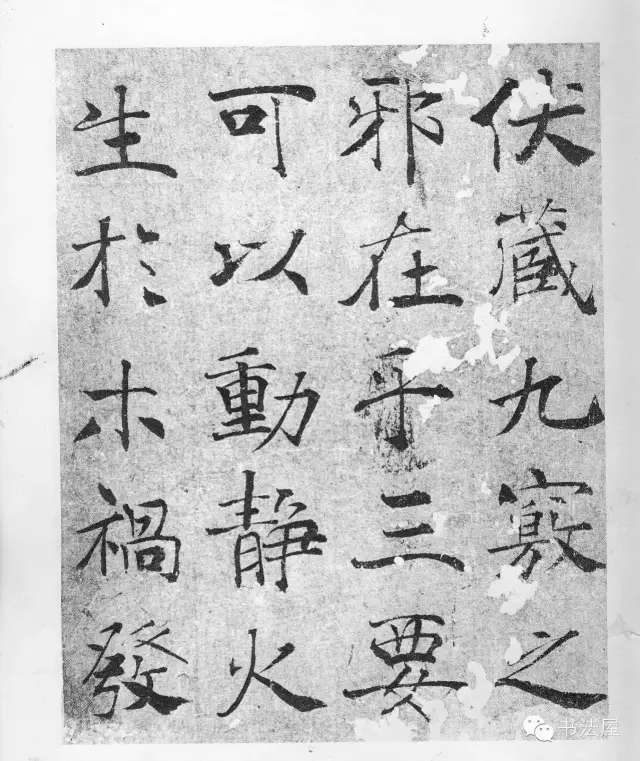 伏藏九竅之
邪在乎三要
可以動静火
生於木禍發
书法屋